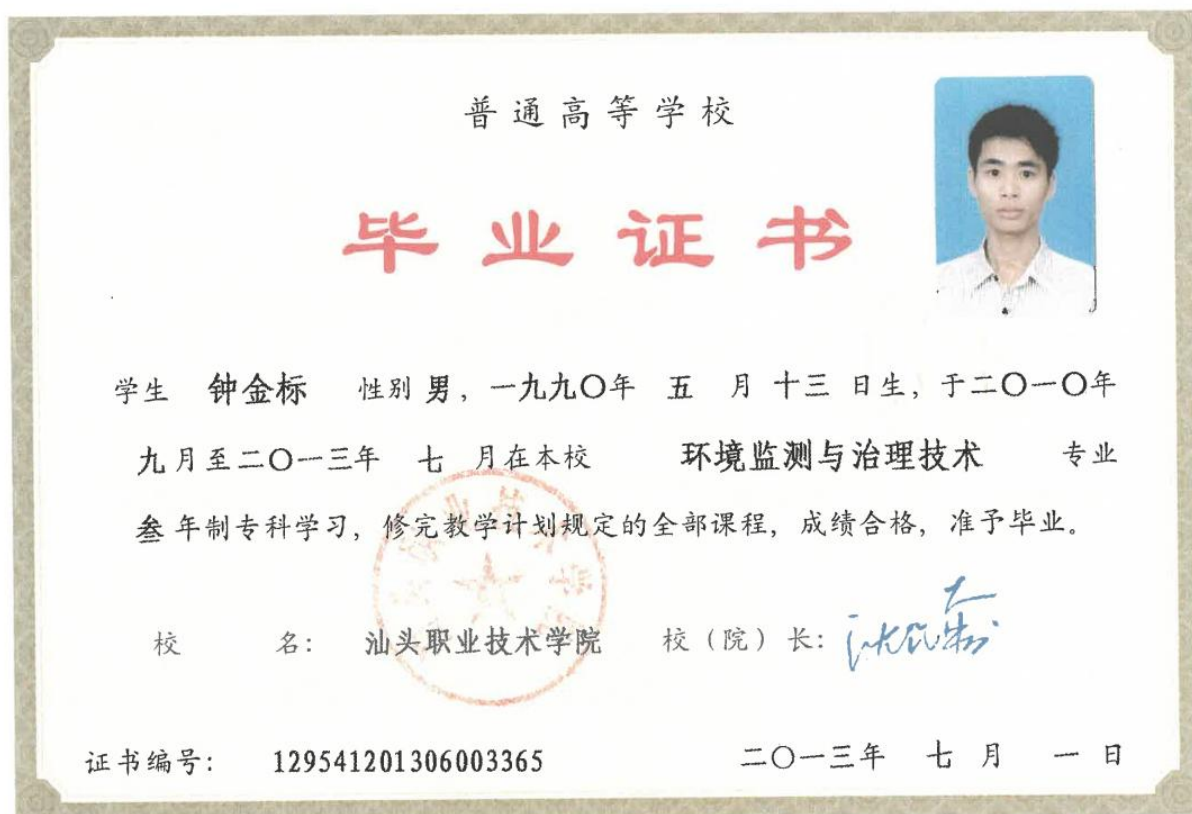 普通高等学校
毕业证书
学生 钟金标 性别 男，一九九〇年 五 月 十三 日生，于二〇一〇年
九月至二〇一三年 七 月在本校 环境监测与治理技术 专业
叁年制专科学习，修完教学计划规定的全部课程，成绩合格，准予毕业。
校 名： 汕头职业技术学院 校（院）长：
证书编号： 129541201306003365 二〇一三年 七 月 一 日